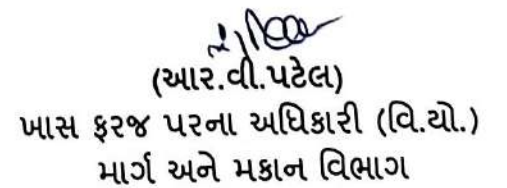 (આર.વી.પટેલ)
ખાસ ફરજ પરના અધિકારી (વિ.યો.)
માર્ગ અને મકાન વિભાગ